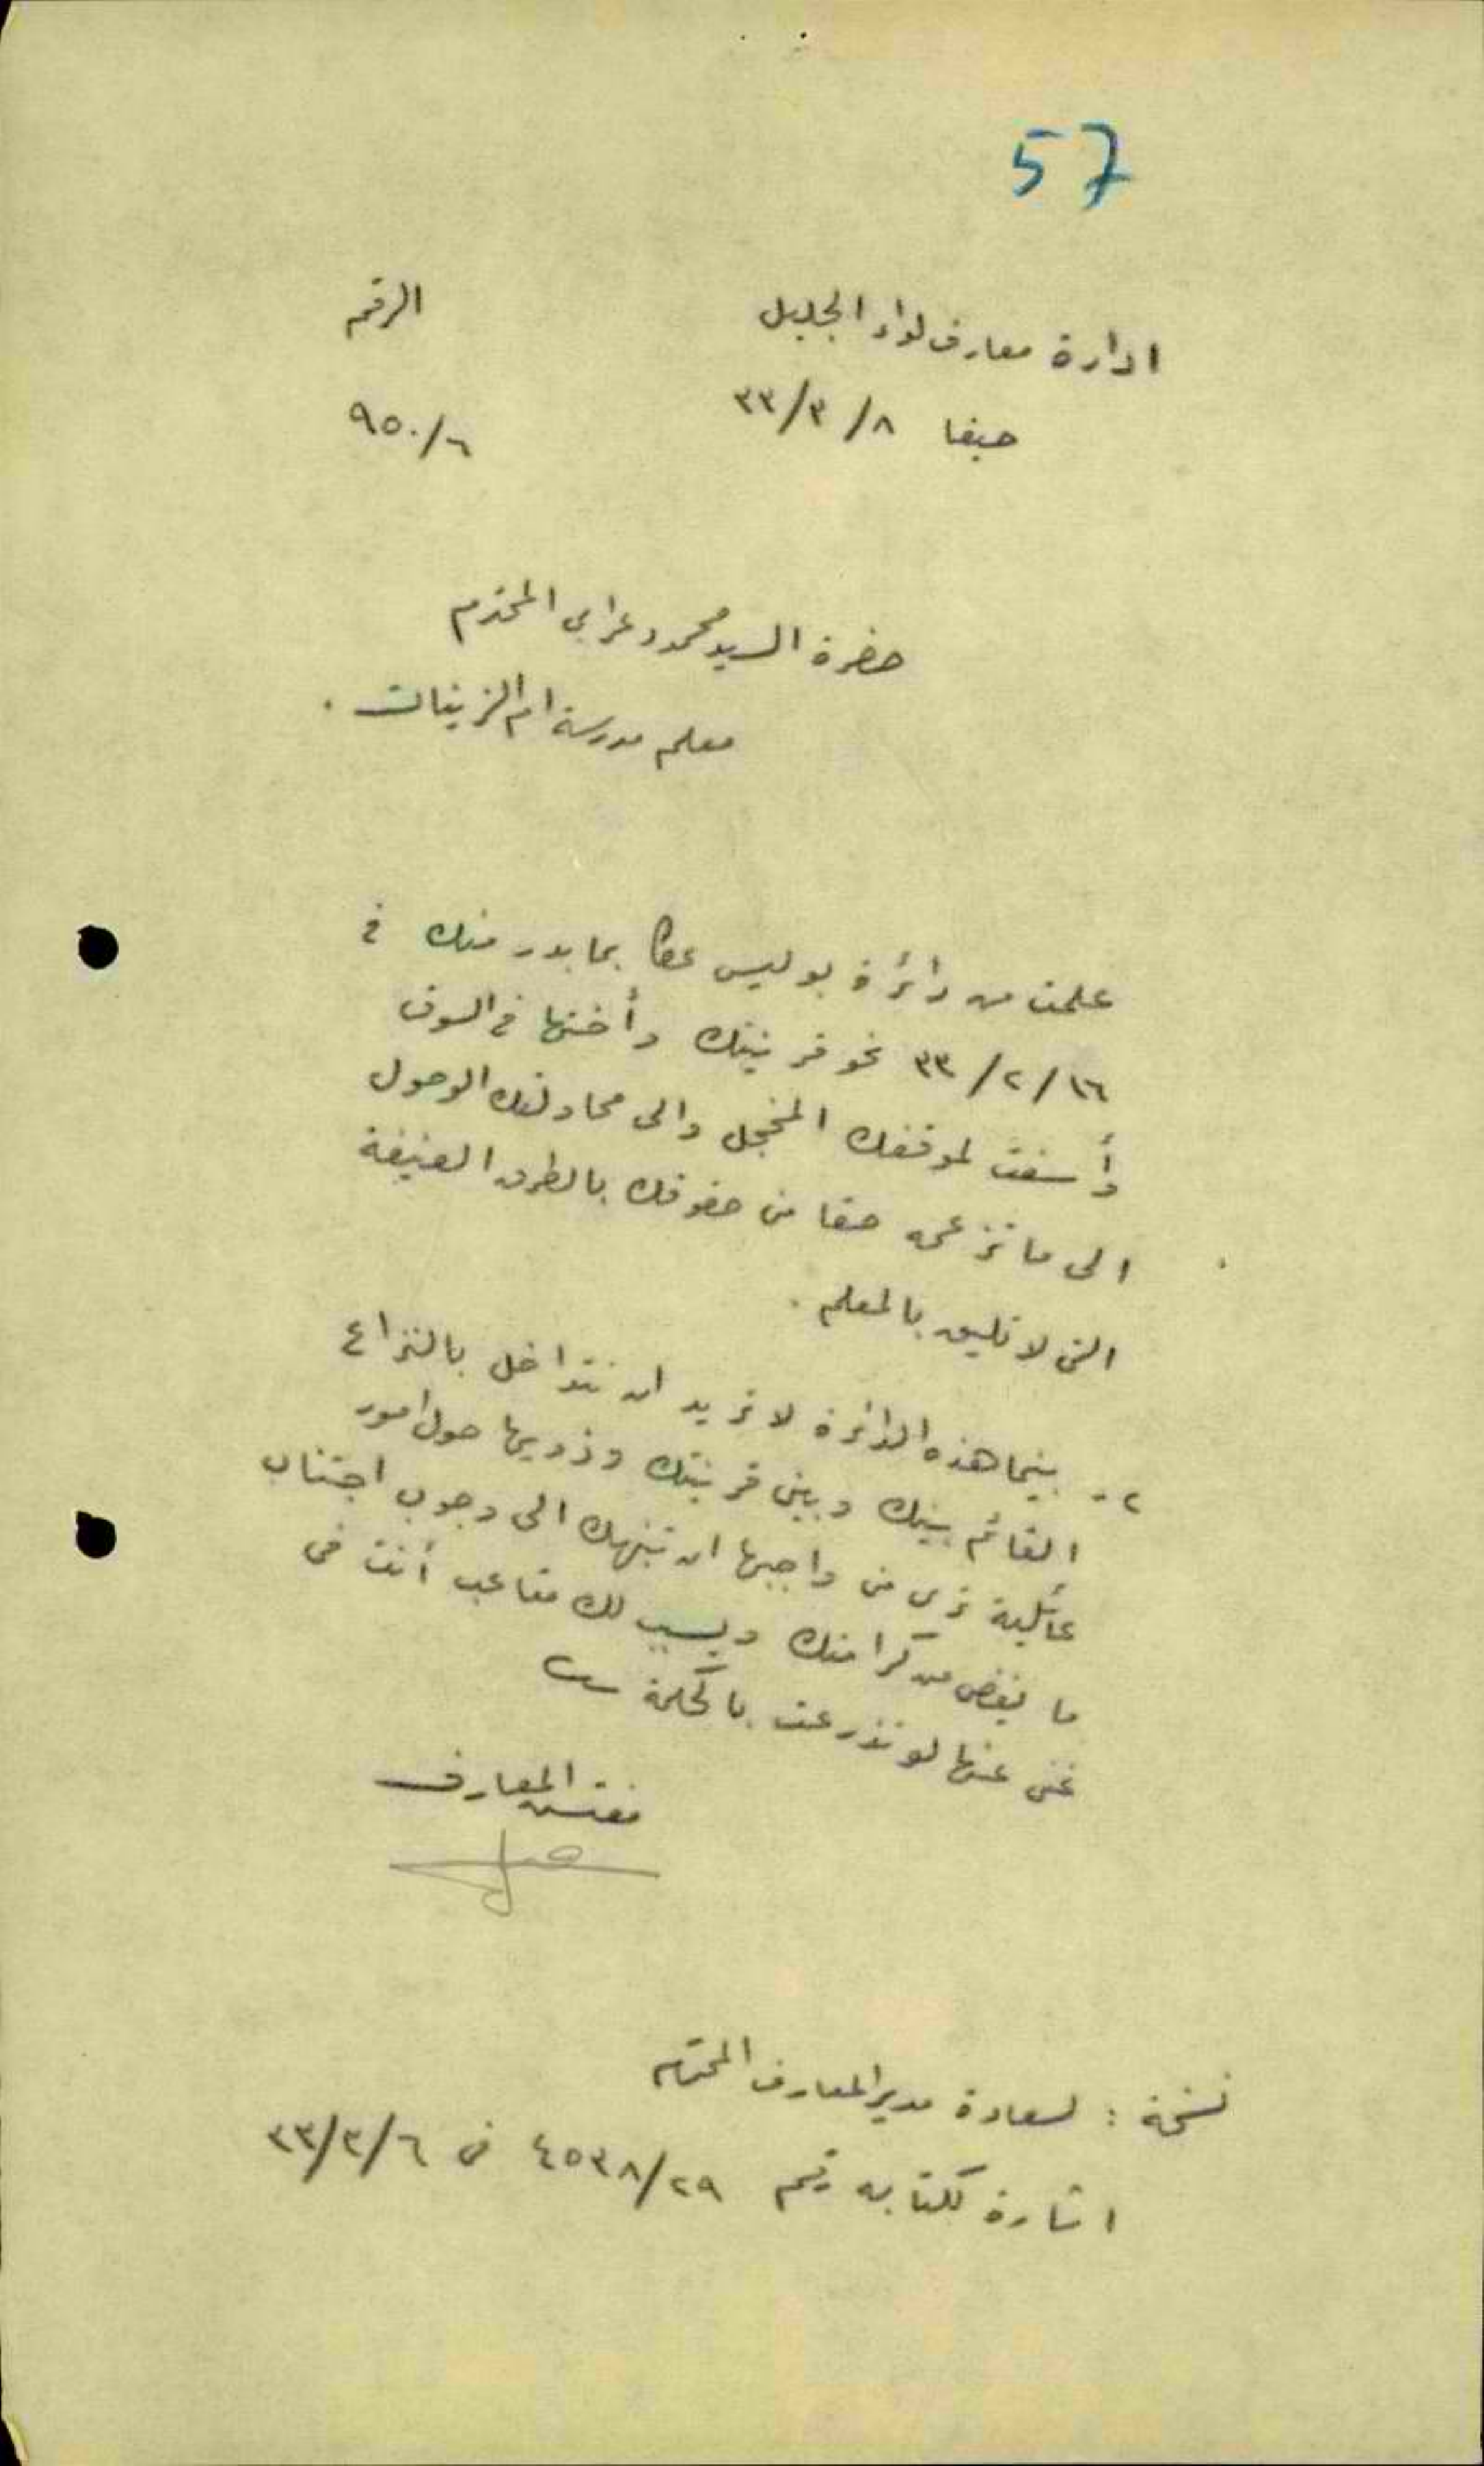 57
ادارة معارف لواء الجليل
الرقم
حيفا ٨/٣/٣٣
٩٥٠/٦
حضرة السيد محمود عرابي المحترم
معلم مدرسة ام الزينات .
علمت من دائرة بوليس عكا بما بدر منك في
١٦/٢/٣٣ نحو قرينتك وأختها في السوق
وأسفت لموقفك المخجل والى محاولتك الوصول
الى ما تزعمه حقا من حقوقك بالطرق العنيفة
التي لا تليق بالمعلم .
٢- بينما هذه الدائرة لا تريد ان تتداخل بالنزاع
القائم بينك وبين قرينتك وذويها حول امور
عائلية ترى من واجبها ان تنبهك الى وجوب اجتناب
ما يغض من كرامتك ويسبب لك متاعب أنت في
غنى عنها لو تذرعت بالحكمة
مفتش المعارف
نسخة : لسعادة مدير المعارف المحترم
اشارة لكتابه رقم ٤٥٣٨/٢٩ في ٦/٣/٣٣